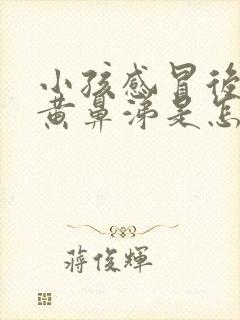 小孩感冒後
黄鼻涕是怎
蔣俊輝